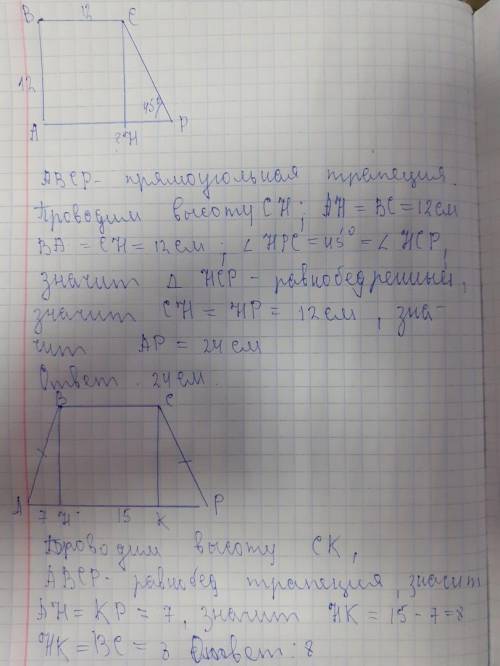 B 12 C
12
45°
A ? H P
ABCP - прямоугольная трапеция.
Проводим высоту CH; AH = BC = 12 см
BA = CH = 12 см; ∠ HPC = 45° = ∠ HCP,
значит Δ HCP - равнобедренный,
значит CH = HP = 12 см, зна-
чит AP = 24 см
Ответ: 24 см.
B C
A 7 H 15 K P
Проводим высоту CK,
ABCP - равнобед трапеция, значит
AH = KP = 7, значит HK = 15 - 7 = 8
HK = BC = 8 Ответ: 8